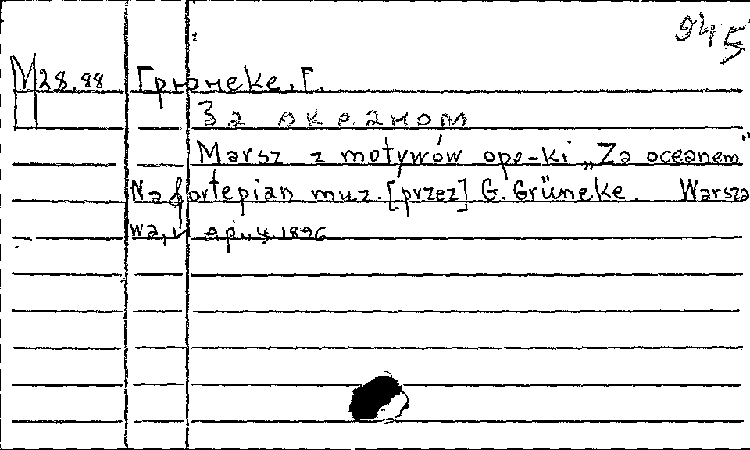 945
М28.88 Грюнеке, Г.
За океаном
Marsz z motywów ope-ki „Za oceanem"
Na fortepian muz. [przez] G. Grüneke. Warsza
wa, 1896